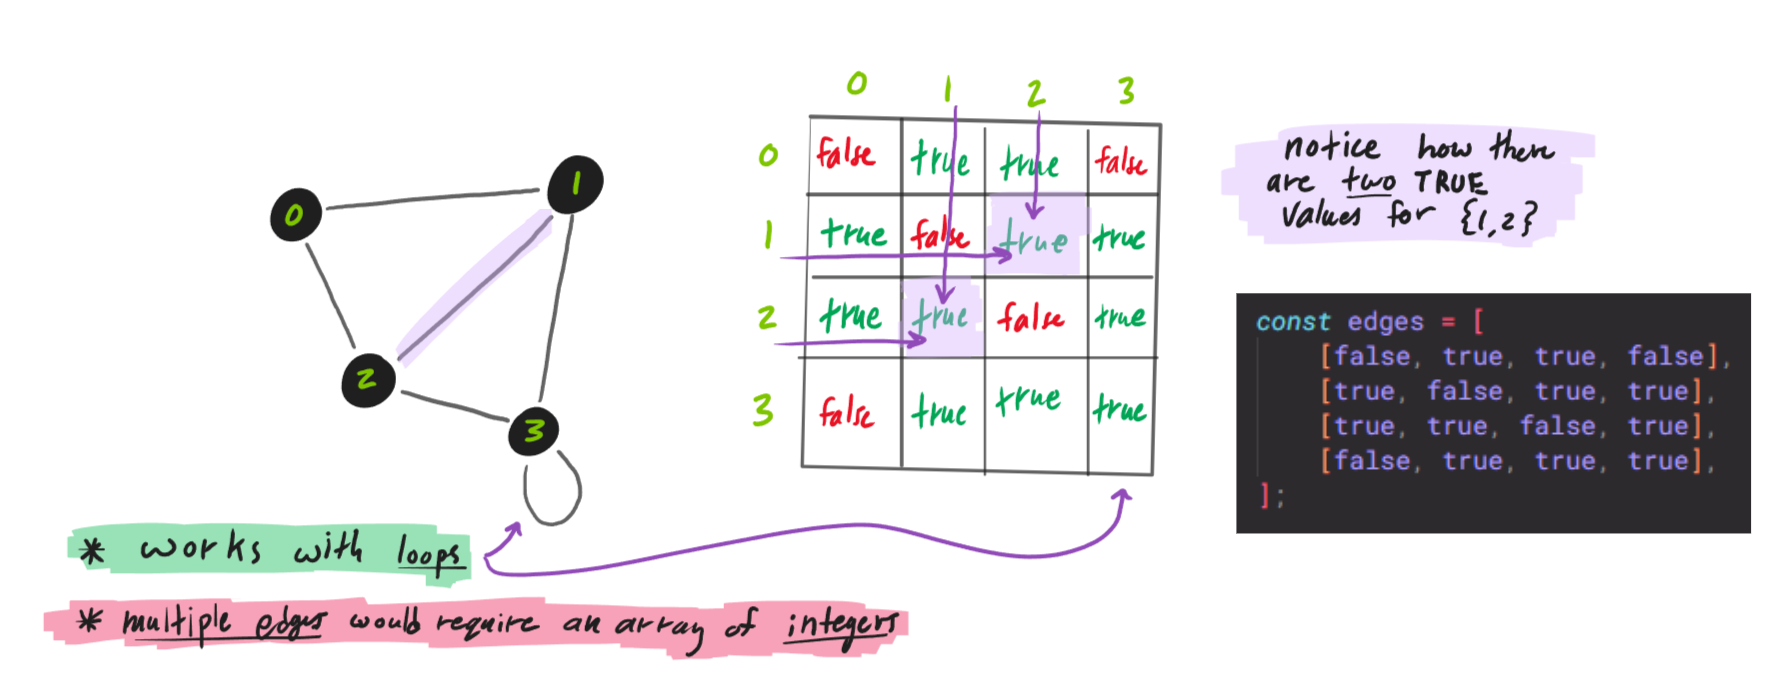 0
1
2
3
0 1 2 3
0 false true true false
1 true false true true
2 true true false true
3 false true true true
notice how there
are two TRUE
values for {1,2}
const edges = [
[false, true, true, false],
[true, false, true, true],
[true, true, false, true],
[false, true, true, true],
];
* works with loops
* multiple edges would require an array of integers